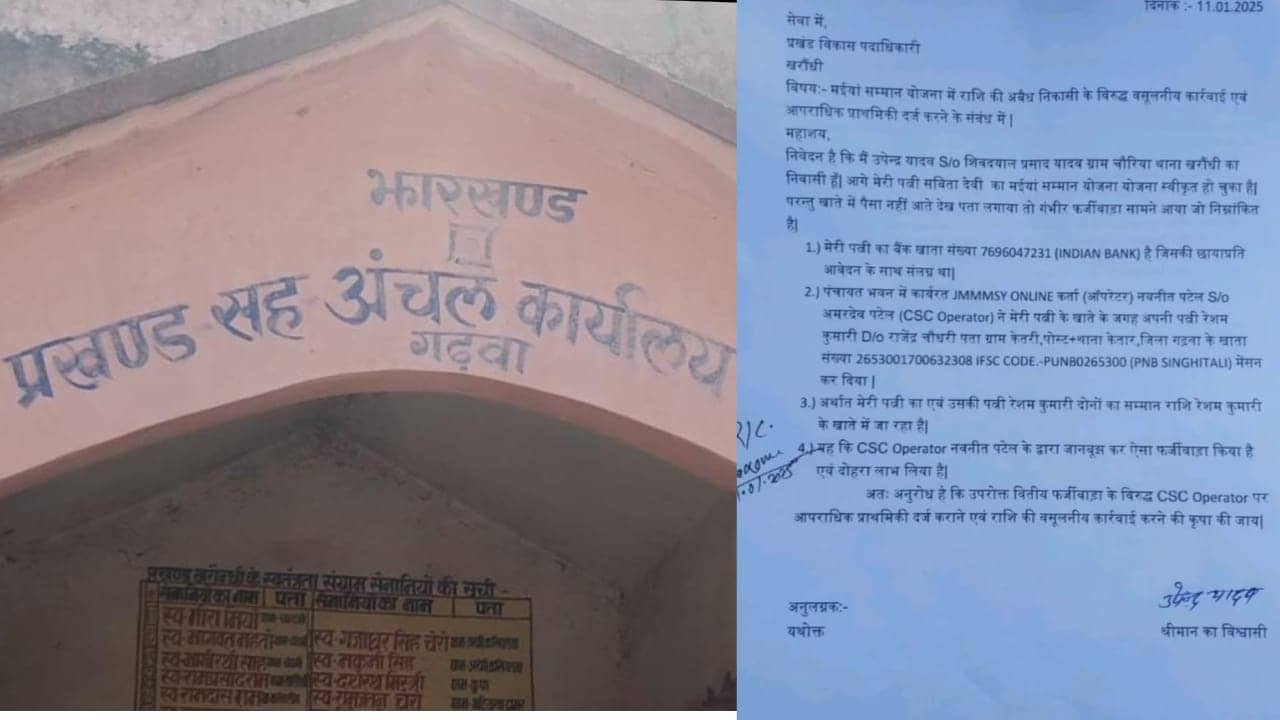 झारखण्ड
प्रखण्ड सह अंचल कार्यालय
गढ़वा
प्रखण्ड खरौंधी के स्वतंत्रता संग्राम सेनानियों की सूची -
सेनानियों का नाम पता सेनानियों का नाम पता
स्व-गजाधर सिंह चेरो
स्व-भागवत महतो
स्व-नकुनी सिंह
स्व-दशरथ मिस्त्री
दिनांक :- 11.01.2025
सेवा में,
प्रखंड विकास पदाधिकारी
खरौंधी
विषय:- मईयां सम्मान योजना में राशि की अवैध निकासी के विरुद्ध वसूलनीय कार्रवाई एवं
आपराधिक प्राथमिकी दर्ज करने के संबंध में |
महाशय,
निवेदन है कि मैं उपेन्द्र यादव S/o शिवदयाल प्रसाद यादव ग्राम चौरिया थाना खरौंधी का
निवासी हूँ| आगे मेरी पत्नी सबिता देवी का मईयां सम्मान योजना योजना स्वीकृत हो चुका है|
परन्तु खाते में पैसा नहीं आते देख पता लगाया तो गंभीर फर्जीवाड़ा सामने आया जो निम्नांकित
है|
1.) मेरी पत्नी का बैंक खाता संख्या 7696047231 (INDIAN BANK) है जिसकी छायाप्रति
आवेदन के साथ संलग्न था|
2.) पंचायत भवन में कार्यरत JMMMSY ONLINE कर्ता (ऑपरेटर) नवनीत पटेल S/o
अमरदेव पटेल (CSC Operator) ने मेरी पत्नी के खाते के जगह अपनी पत्नी रेशम
कुमारी D/o राजेंद्र चौधरी पता ग्राम केतरी,पोस्ट+थाना केतार,जिला गढ़वा के खाता
संख्या 2653001700632308 IFSC CODE.-PUNB0265300 (PNB SINGHITALI) मेंसन
कर दिया |
3.) अर्थात मेरी पत्नी का एवं उसकी पत्नी रेशम कुमारी दोनों का सम्मान राशि रेशम कुमारी
के खाते में जा रहा है|
4.) यह कि CSC Operator नवनीत पटेल के द्वारा जानबूझ कर ऐसा फर्जीवाड़ा किया है
एवं दोहरा लाभ लिया है|
अतः अनुरोध है कि उपरोक्त वितीय फर्जीवाड़ा के विरुद्ध CSC Operator पर
आपराधिक प्राथमिकी दर्ज कराने एवं राशि की वसूलनीय कार्रवाई करने की कृपा की जाय|
उपेन्द्र यादव
अनुलग्नक:-
यथोक्त
श्रीमान का विश्वासी